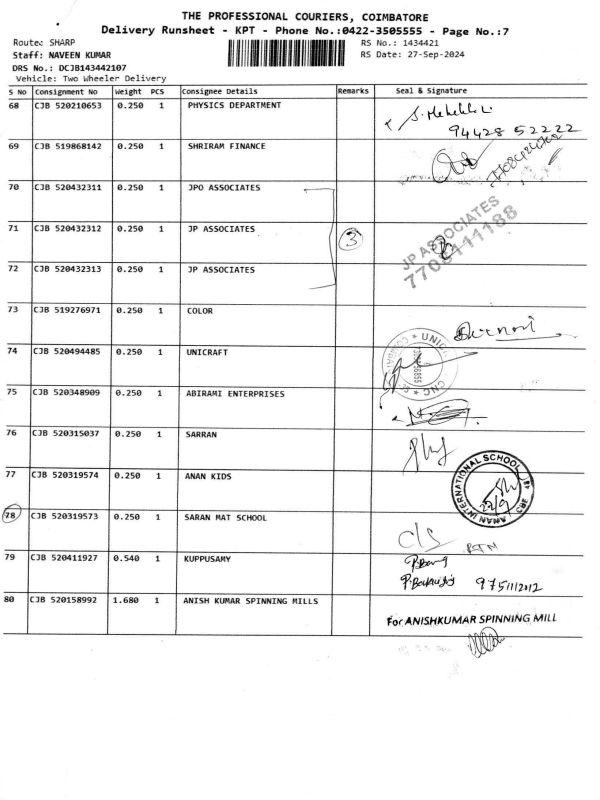 THE PROFESSIONAL COURIERS, COIMBATORE
Delivery Runsheet - KPT - Phone No.:0422-3505555 - Page No.:7
Route: SHARP
RS No.: 1434421
Staff: NAVEEN KUMAR
RS Date: 27-Sep-2024
DRS No.: DCJB143442107
Vehicle: Two Wheeler Delivery
S No Consignment No Weight PCS Consignee Details Remarks Seal & Signature
68 CJB 520210653 0.250 1 PHYSICS DEPARTMENT
94428 52222
69 CJB 519868142 0.250 1 SHRIRAM FINANCE
70 CJB 520432311 0.250 1 JPO ASSOCIATES
71 CJB 520432312 0.250 1 JP ASSOCIATES 3 JP ASSOCIATES
72 CJB 520432313 0.250 1 JP ASSOCIATES
73 CJB 519276971 0.250 1 COLOR
74 CJB 520494485 0.250 1 UNICRAFT
75 CJB 520348909 0.250 1 ABIRAMI ENTERPRISES
76 CJB 520315037 0.250 1 SARRAN
77 CJB 520319574 0.250 1 ANAN KIDS
ANAN INTERNATIONAL SCHOOL
22/9
78 CJB 520319573 0.250 1 SARAN MAT SCHOOL
C/S
79 CJB 520411927 0.540 1 KUPPUSAMY
80 CJB 520158992 1.680 1 ANISH KUMAR SPINNING MILLS
For ANISHKUMAR SPINNING MILL